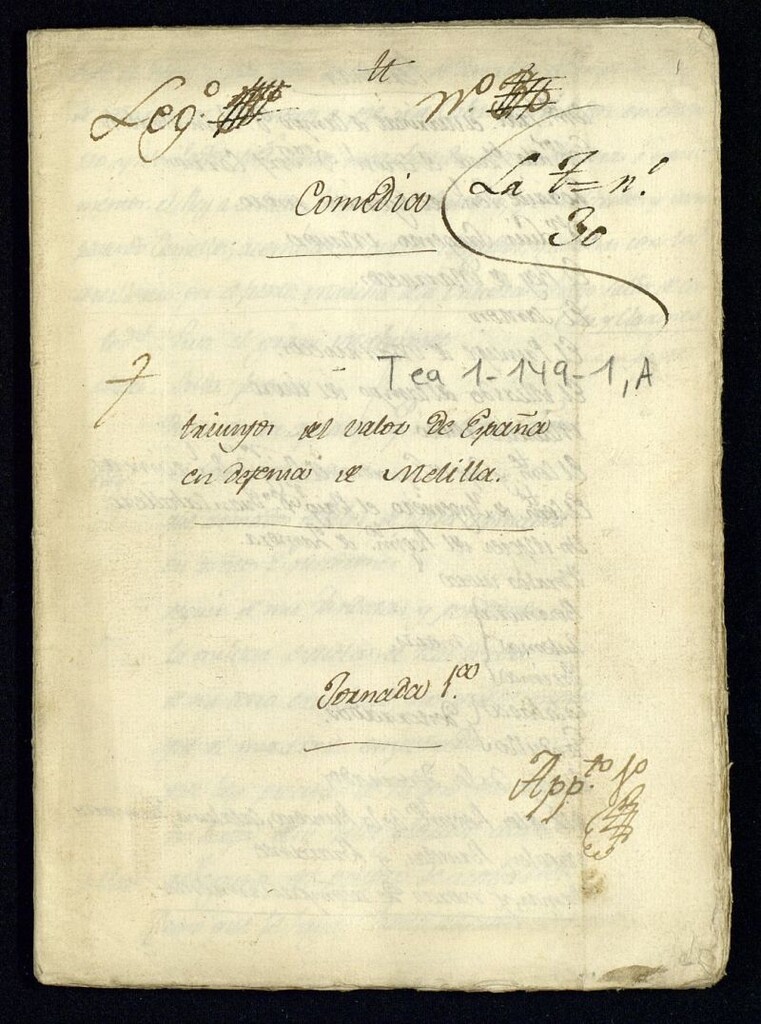 tt
Leg.º nº
Comedia La T= n.º
30
Tea 1-149-1, A
triunfos del valor de España
en defensa de Melilla.
Jornada 1.ª
App.to 1º